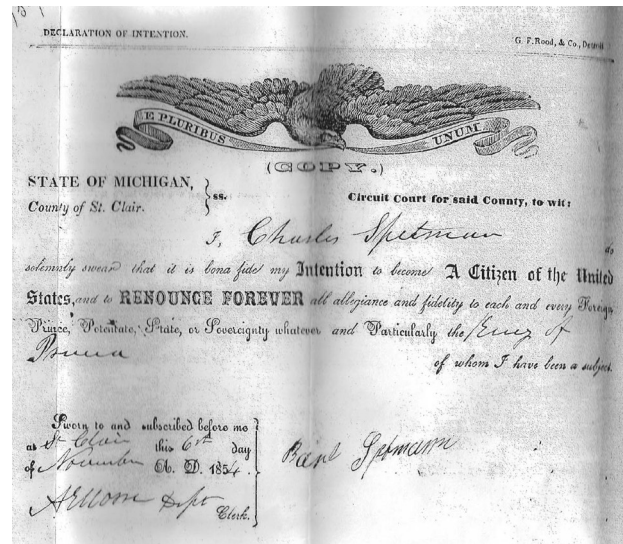 DECLARATION OF INTENTION.
G. F. Rood, & Co., Detroit
E PLURIBUS UNUM
(COPY.)
STATE OF MICHIGAN, } ss.
County of St. Clair.
Circuit Court for said County, to wit:
I, Charles Spetman do
solemnly swear that it is bona fide my Intention to become A Citizen of the United
States, and to RENOUNCE FOREVER all allegiance and fidelity to each and every Foreign
Prince, Potentate, State, or Sovereignty whatever and Particularly the King of
of whom I have been a subject.
Sworn to and subscribed before me
at St Clair this 6 day
of November A. D. 1854.
Clerk.